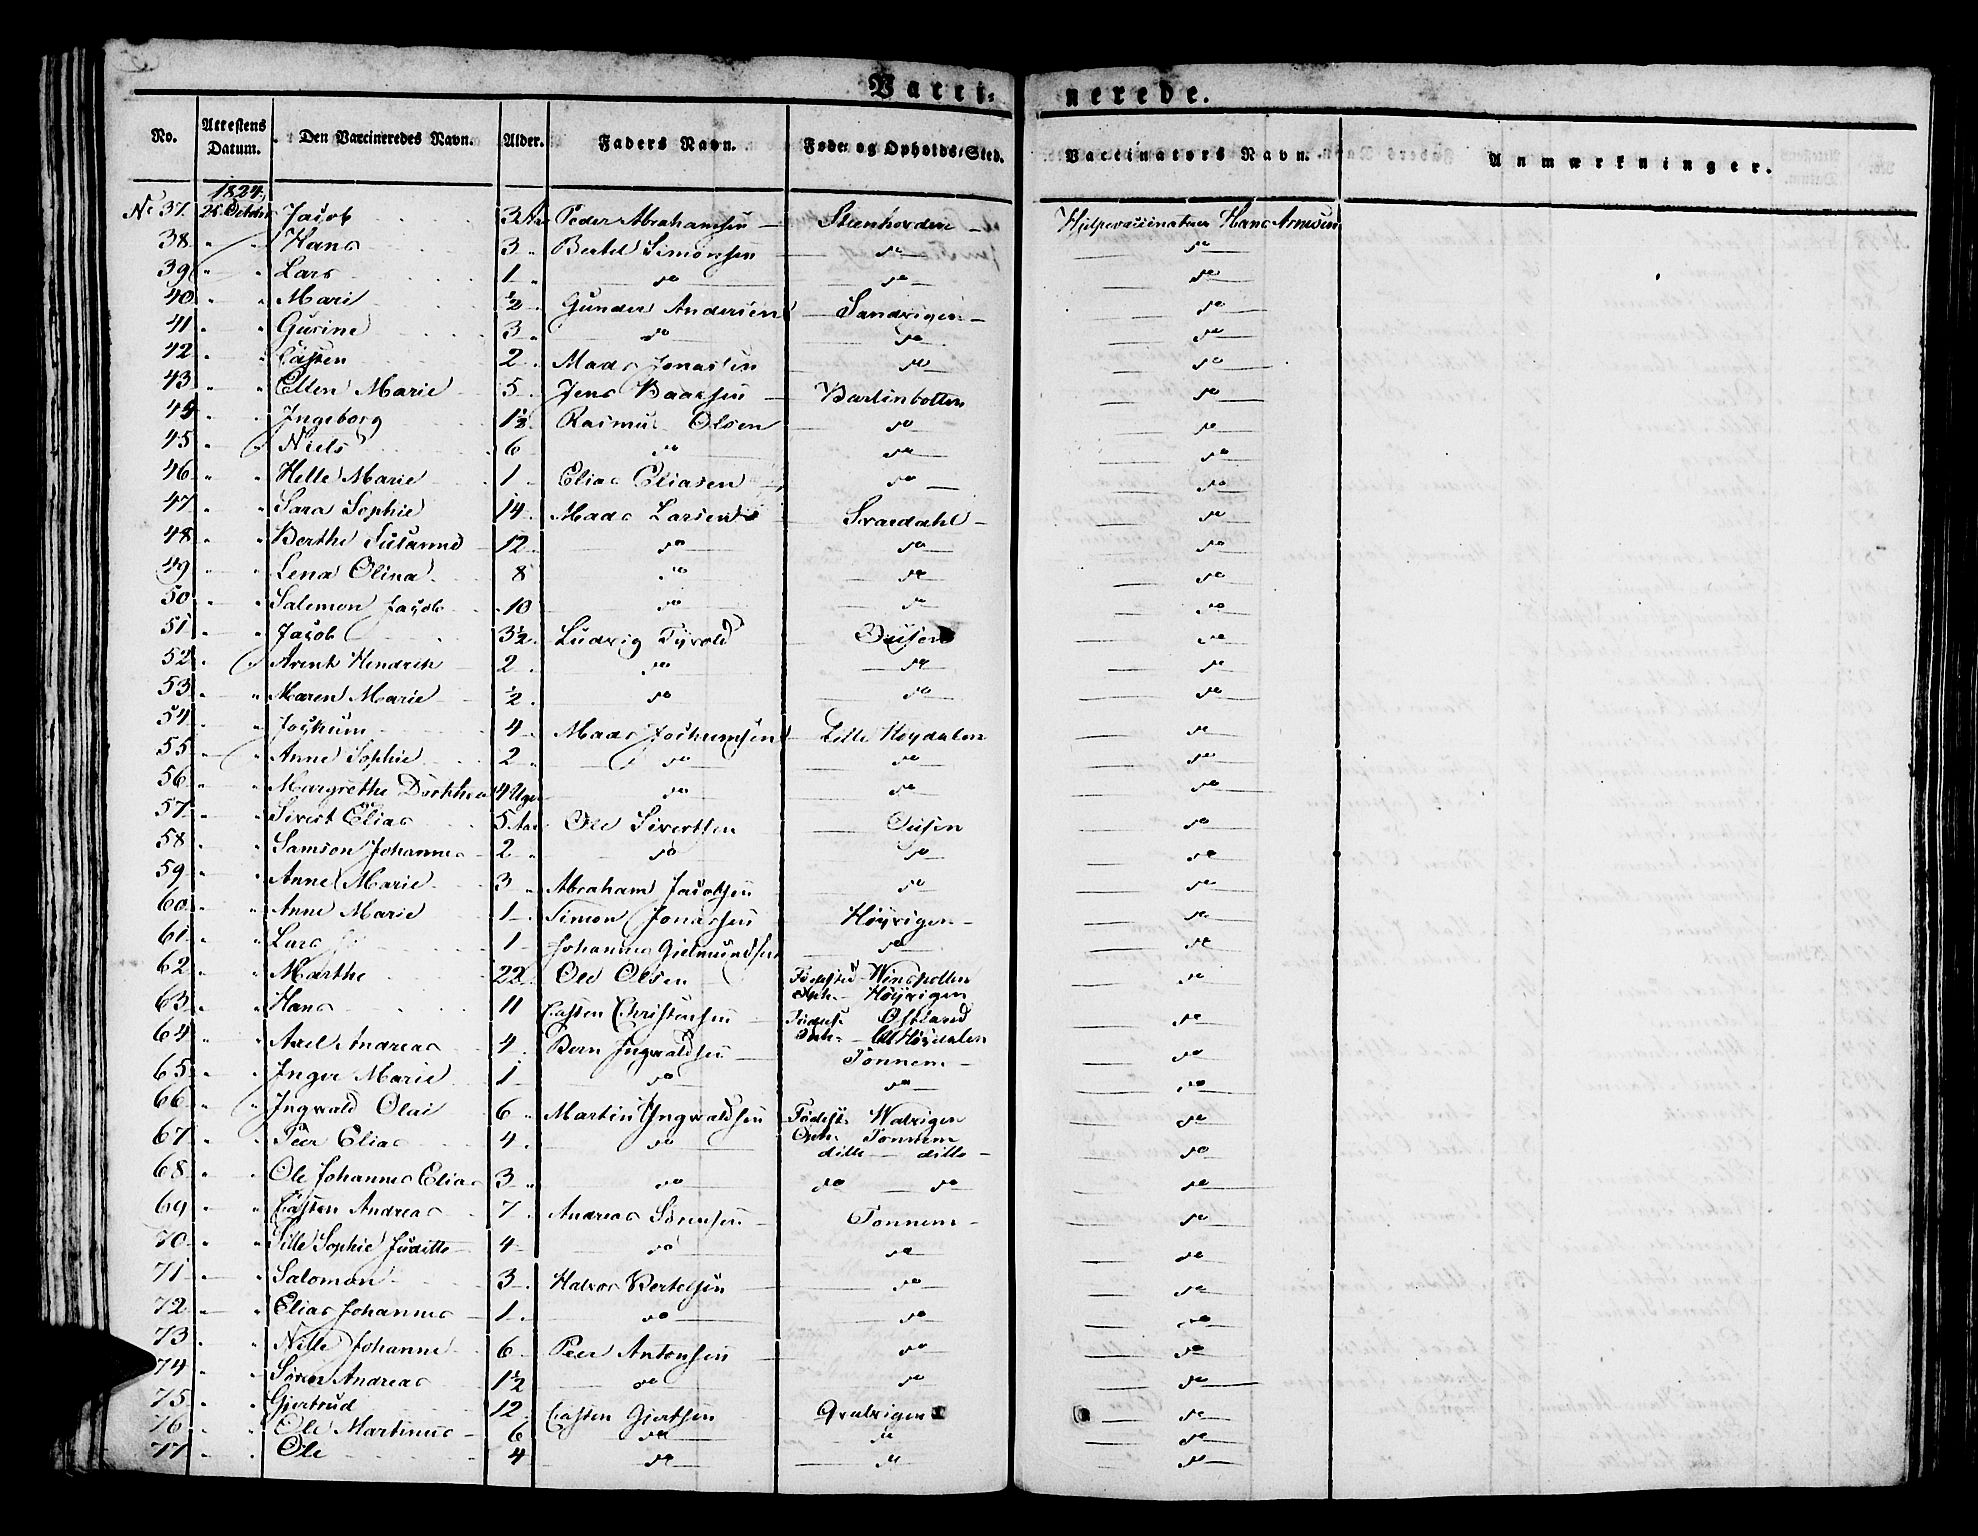 Vacci- nerede.
No. Attestens Datum. Den Vaccineredes Navn. Alder. Faders Navn. Føde- og Opholds-Sted. Vaccinators Navn. Anmærkninger.
1824.
No 37. Jacob 3 Aar Peder Abrahamsen Steenhorden Hjelpevaccinateur Hans Arnesen
38 " " Hans 3 " Bertel Simonsen do do
39 " " Lars 1 " do do do
40 " " Mari ½ " Gunder Andersen Sandvigen do
41 " " Gurine 3 " do do do
42 " " Casten 2 " Mads Jonassen do do
43 " " Ellen Marie 5 " Jens Baarsen do
44 " " Ingeborg Rasmus Olsen do do
45 " " Niels 6 " do do
46 " " Helle Marie 1 " Elias Eliasen do do
47 " " Sara Sophie 14 " Mads Larsen Svardahl do
48 " " Berthe Susanne 12 " do do do
49 " " Lena Olina 8 do do do
50 " " Salemon Jacob 10 do do do
51 " " Jacob 3½ Ludvig Tyvold do
52 " " Arent Hendrich 2 " do do
53 " " Maren Marie ½ " do do do
54 " " Jochum 4 " Mads Jochumsen Lille Høydalen do
55 " " Anne Sophie 2 " do do do
56 " " Margrethe Dorthea 4 Uger do do do
57 " " Sivert Elias 5 Aar Ole Sivertsen do
58 " " Samson Johannes 2 " do do do
59 " " Anne Marie 3 " Abraham Jacobsen do do
60 " " Anne Marie 1 " Simon Jonassen Høyvigen do
61 " " Lars 1 " Johannes Gielmundsen do do
62 " " Marthe 22 Ole Olsen Fødested Winspollen do
Oph. Høyvigen
63 " " Hans 11 Casten Christensen Fødest. Østland do
Oph. Lll Høydalen
64 " " Axel Andreas 4 " Bern Ingvaldsen Tonnem do
65 " " Inger Marie 1 " do do do
66 " " Ingvald Olai 6 " Martin Ingvaldsen Fødest. Walvigen
Oph. Tonnem
67 " " Peer Elias 4 " do ditto ditto do
68 " " Ole Johannes Elias 3 " do do do do
69 " " Casten Andreas 7 " Andreas Sørensen Tonnem do
70 " " Sille Sophie Juditte 4 " do do do
71 " " Salomon 3 " Halvor Bertelsen do do
72 " " Elias Johannes 1 " do do do
73 " " Nille Johanne 6 " Peer Antonsen do do
74 " " Søren Andreas 1½ do do do
75 " " Giertrud 12 " Casten Giertsen do
76 " " Ole Martinus 6 do do do
77 " " Ole 4 do do do